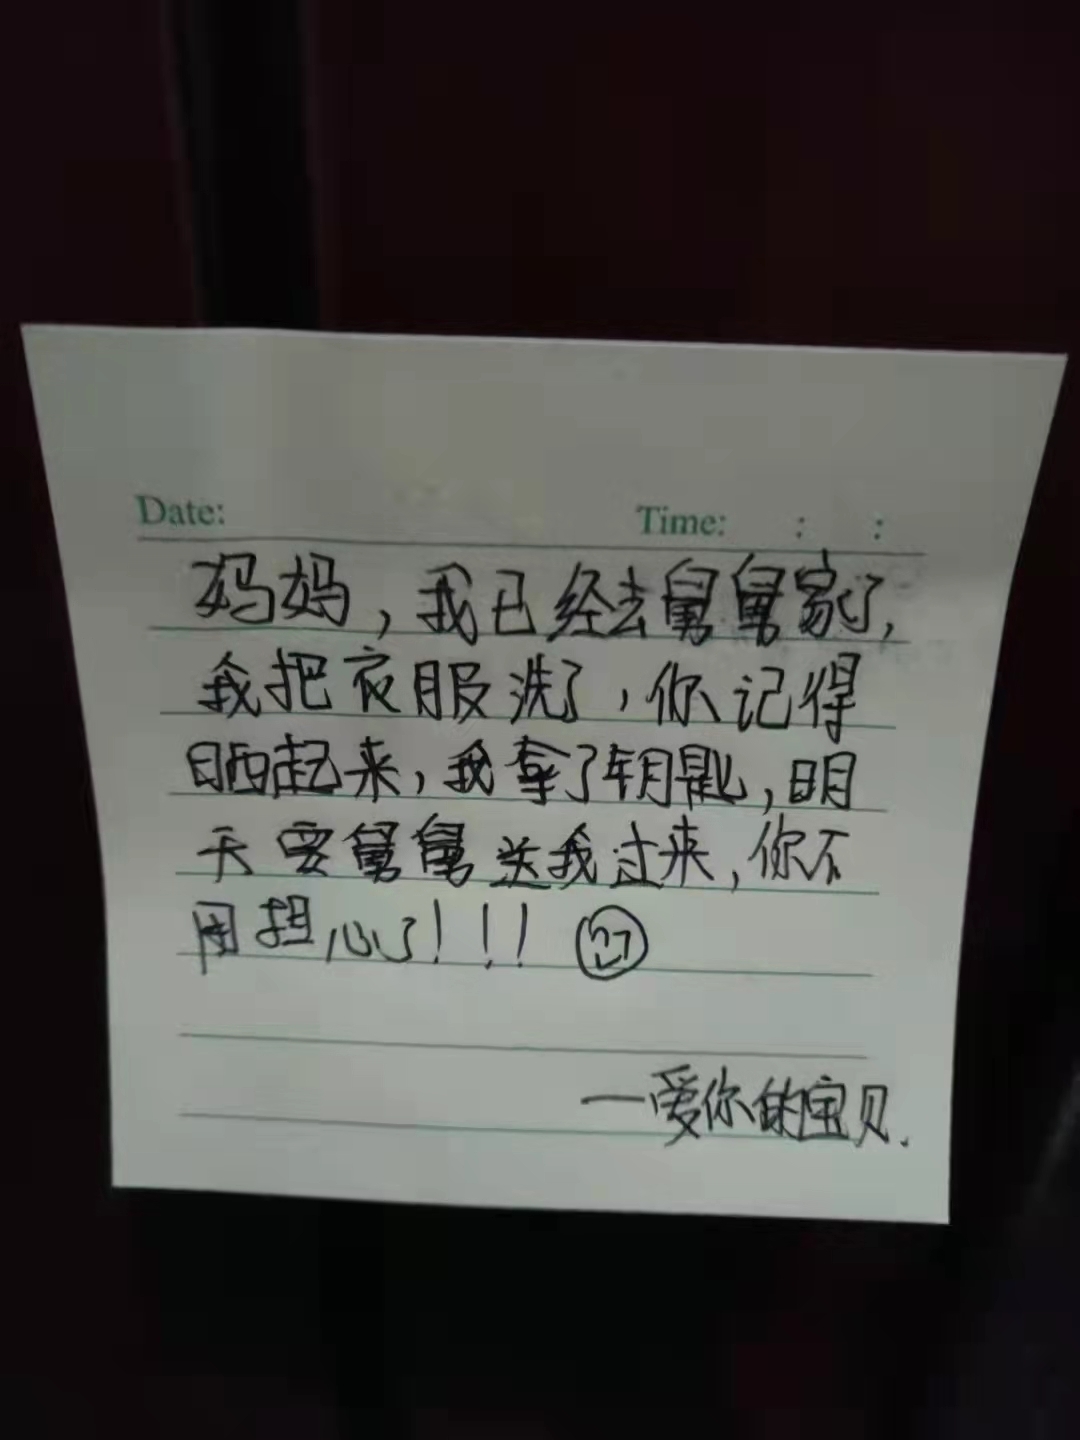 Date: Time: : :
妈妈，我已经去舅舅家了，
我把衣服洗了，你记得
晒起来，我拿了钥匙，明
天要舅舅送我过来，你不
用担心了！！！
—爱你的宝贝.